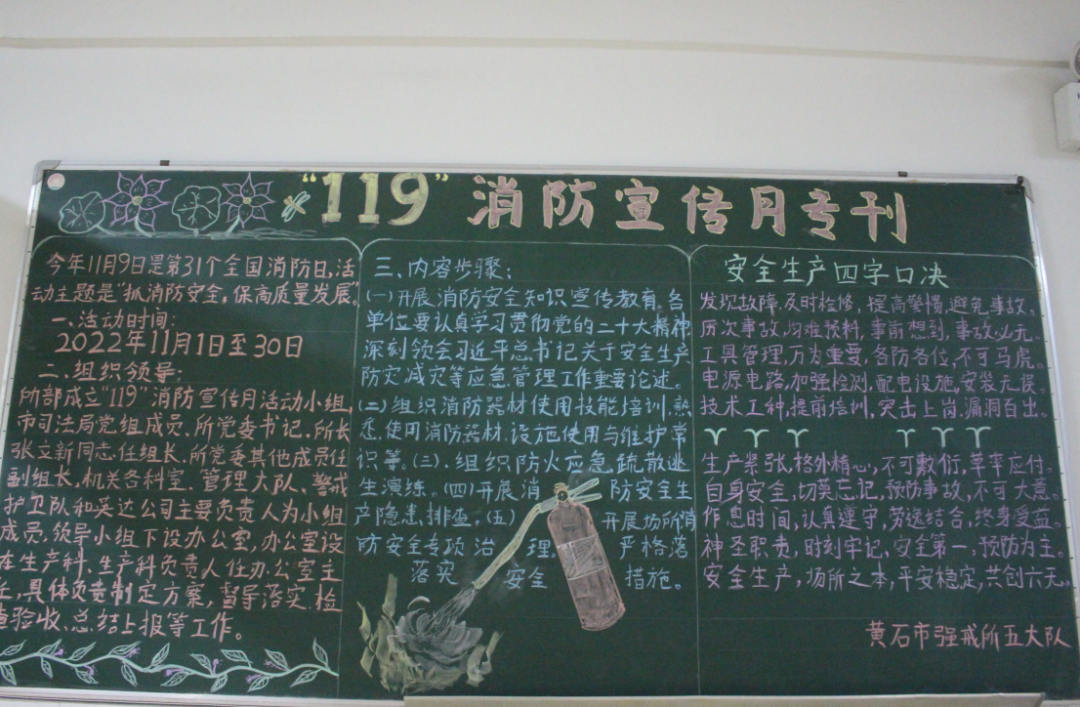 “119”消防宣传月专刊
今年11月9日是第31个全国消防日,活
动主题是“抓消防安全,保高质量发展”
一、活动时间:
2022年11月1日至30日
二、组织领导:
所部成立“119”消防宣传月活动小组,
市司法局党组成员、所党委书记、所长
张立新同志任组长、所党委其他成员任
副组长,机关各科室、管理大队、警戒
护卫队和奚达公司主要负责人为小组
成员,领导小组下设办公室,办公室设
在生产科、生产科负责人任办公室主
任,具体负责制定方案,督导落实、检
查验收、总结上报等工作。
三、内容步骤:
(一)开展消防安全知识宣传教育,各
单位要认真学习贯彻党的二十大精神
深刻领会习近平总书记关于安全生产
防灾减灾等应急管理工作重要论述。
(二)组织消防器材使用技能培训,熟
悉使用消防器材、设施使用与维护常
识等。(三)、组织防火应急疏散逃
生演练。(四)开展消防安全生
产隐患排查。(五)开展场所消
防安全专项治理严格落
落实安全措施。
安全生产四字口决
发现故障,及时检修,提高警惕,避免事故。
历次事故,均难预料,事前想到,事故必无。
工具管理,万为重要,各防各位,不可马虎。
电源电路,加强检测,配电设施,安装无误
技术工种,提前培训,突击上岗,漏洞百出。
生产紧张,格外精心,不可敷衍,草率应付。
自身安全,切莫忘记,预防事故,不可大意。
作息时间,认真遵守,劳逸结合,终身受益。
神圣职责,时刻牢记,安全第一,预防为主。
安全生产,场所之本,平安稳定,共创六无。
黄石市强戒所五大队